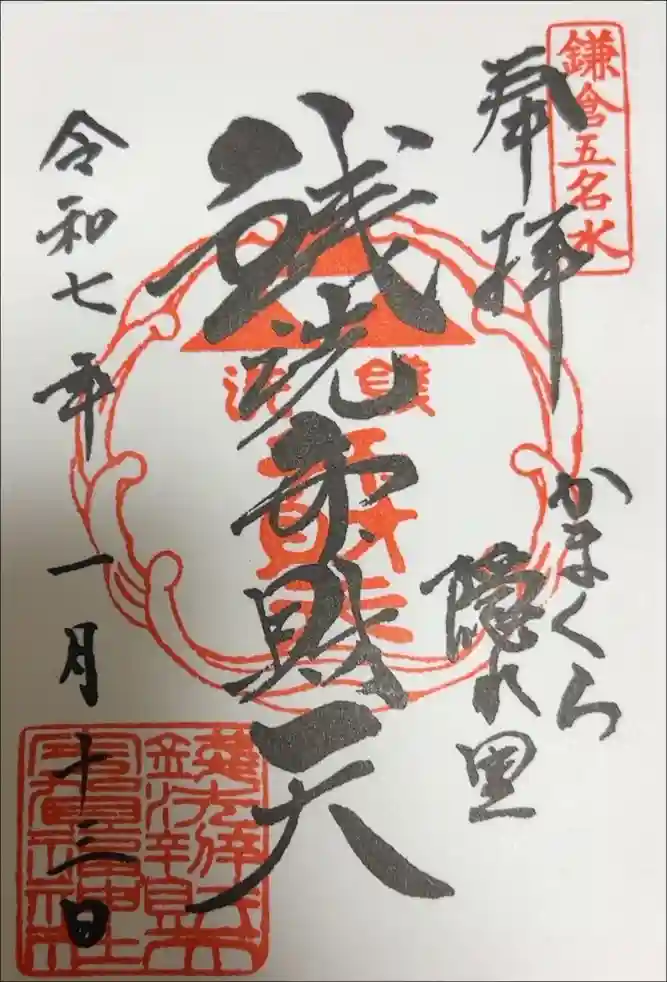 鎌倉五名水
奉拝
かまくら
隠れ里
銭洗弁財天
銭洗
令和七年一月十三日